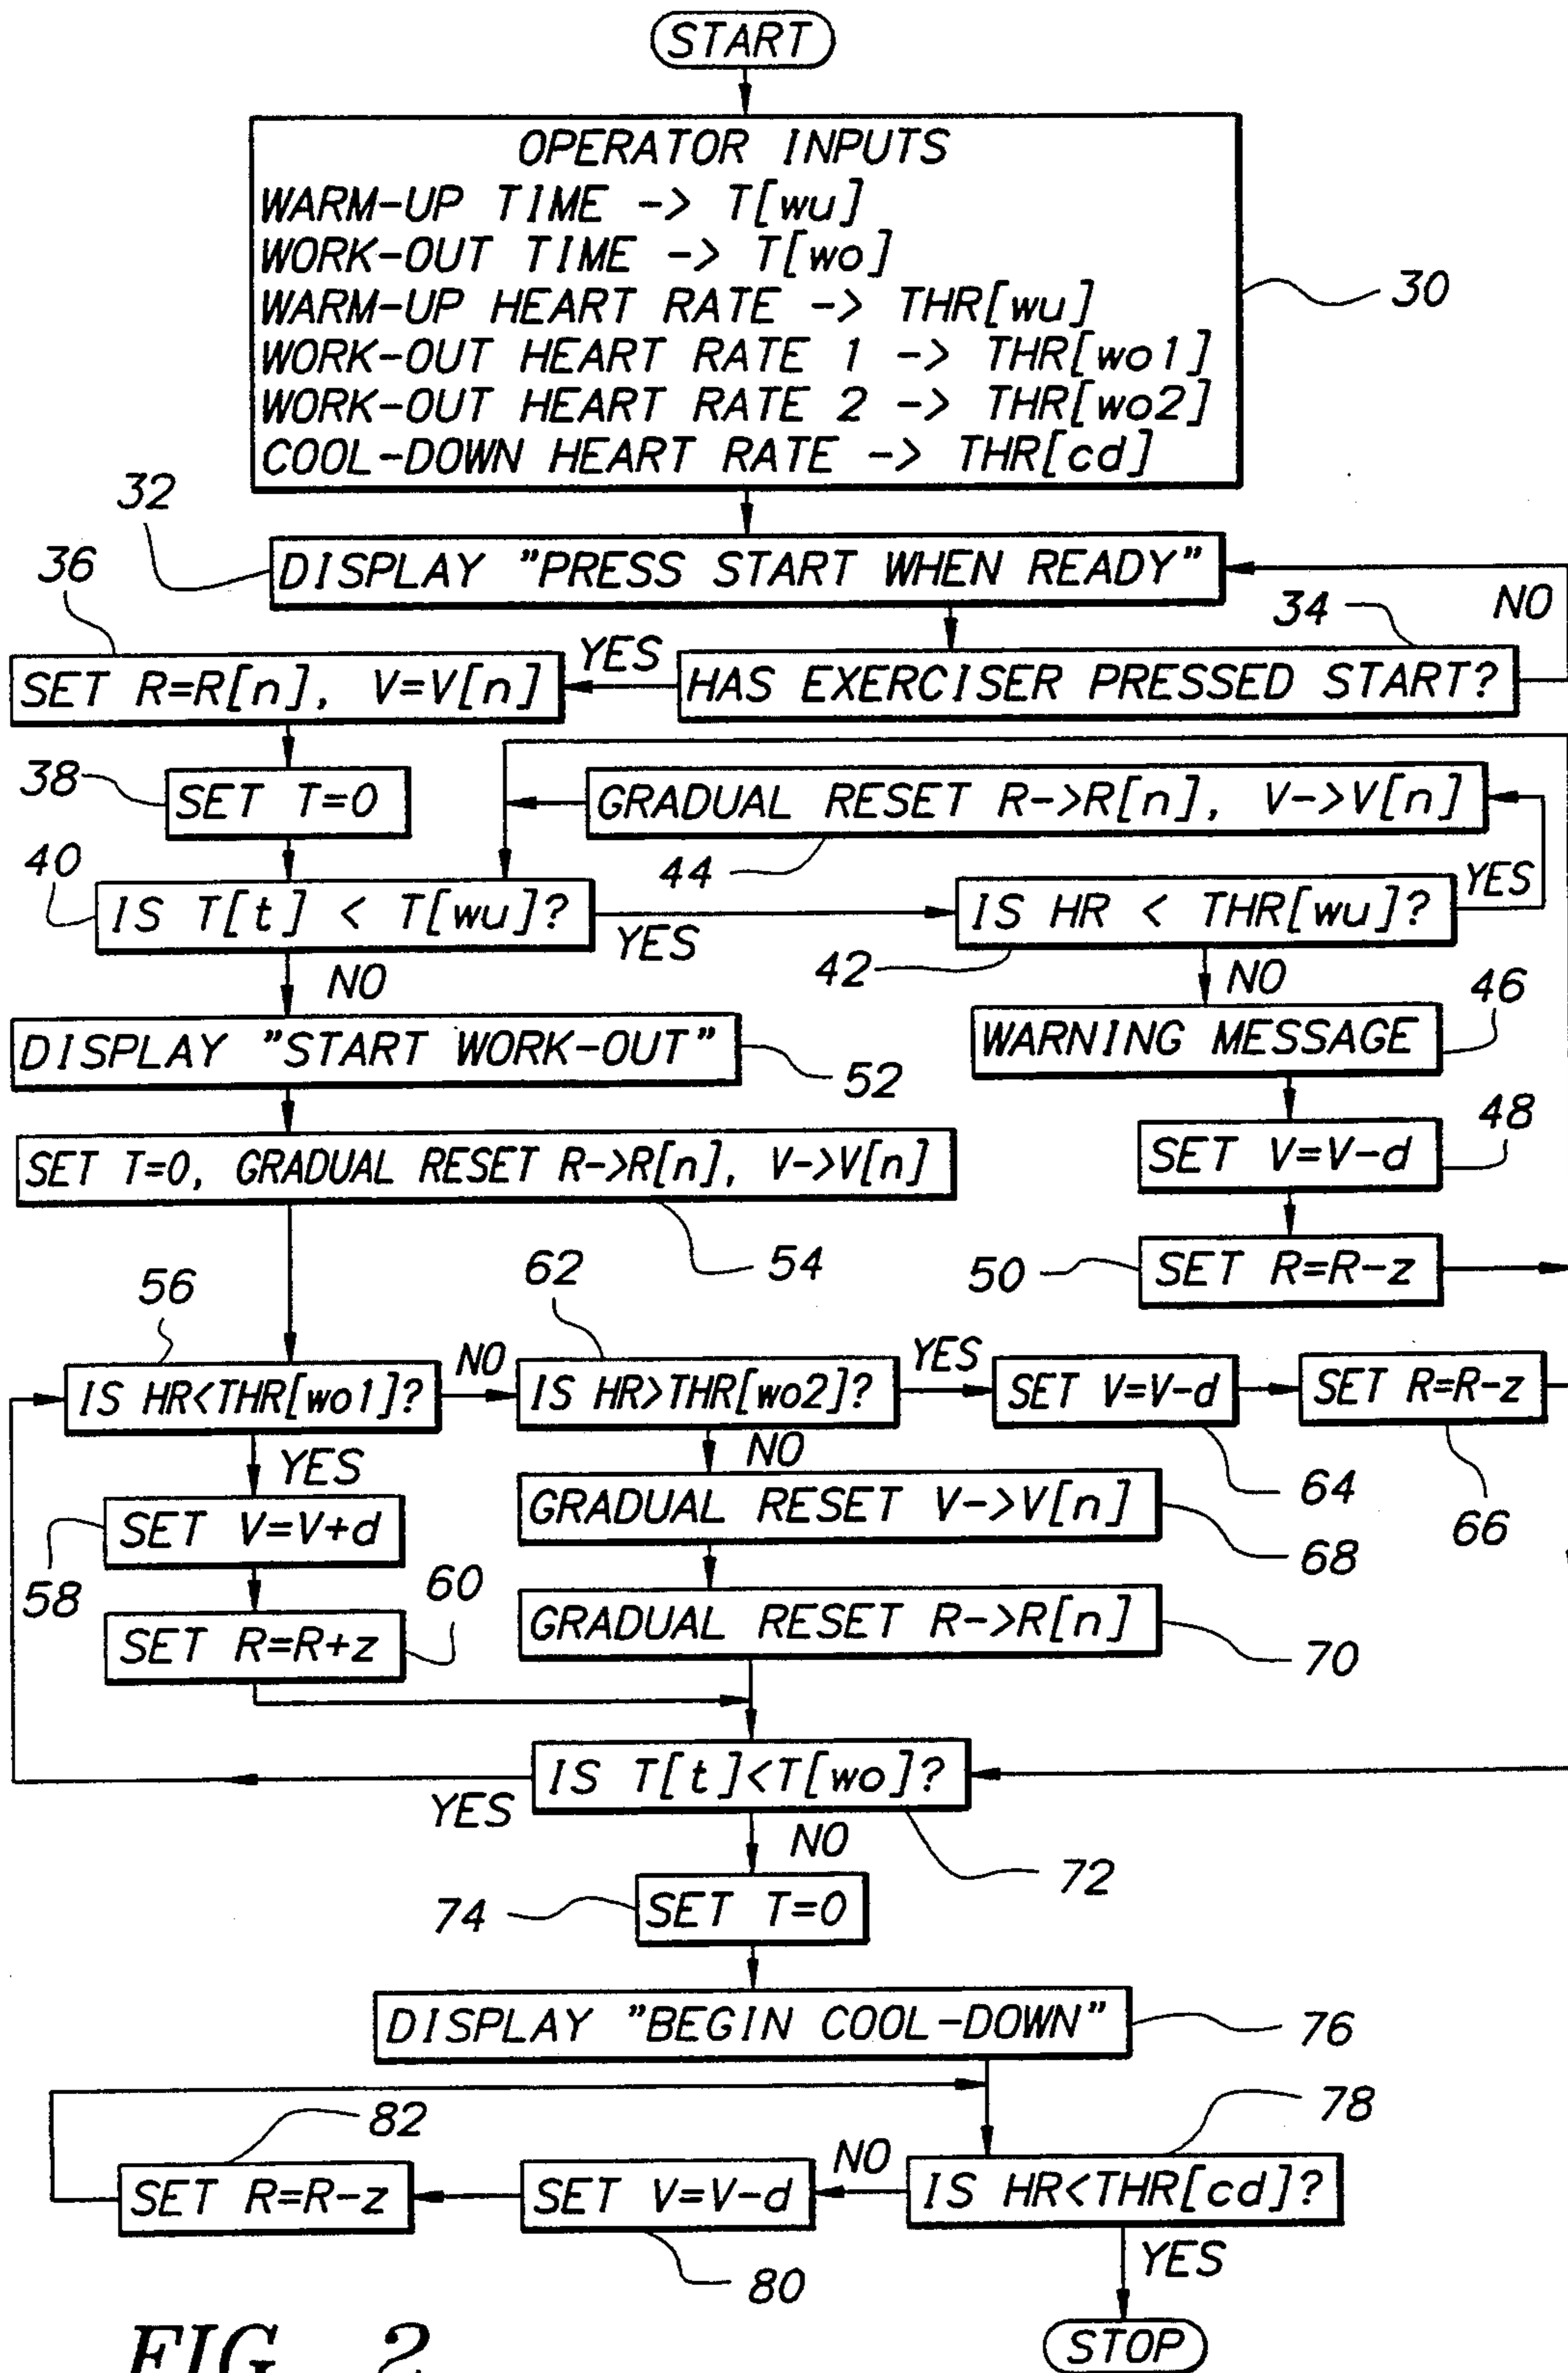 START
OPERATOR INPUTS
WARM-UP TIME -> T[wu]
WORK-OUT TIME -> T[wo]
WARM-UP HEART RATE -> THR[wu]
WORK-OUT HEART RATE 1 -> THR[wo1]
WORK-OUT HEART RATE 2 -> THR[wo2]
COOL-DOWN HEART RATE -> THR[cd]
30
32
DISPLAY "PRESS START WHEN READY"
36
34
NO
SET R=R[n], V=V[n]
YES
HAS EXERCISER PRESSED START?
38
SET T=0
GRADUAL RESET R->R[n], V->V[n]
44
40
IS T[t] < T[wu]?
YES
IS HR < THR[wu]?
YES
42
NO
NO
46
DISPLAY "START WORK-OUT"
52
WARNING MESSAGE
48
SET T=0, GRADUAL RESET R->R[n], V->V[n]
54
SET V=V-d
50
SET R=R-z
56
62
IS HR<THR[wo1]?
NO
IS HR>THR[wo2]?
YES
SET V=V-d
SET R=R-z
64
66
YES
NO
58
SET V=V+d
GRADUAL RESET V->V[n]
68
60
SET R=R+z
GRADUAL RESET R->R[n]
70
IS T[t]<T[wo]?
YES
NO
72
74
SET T=0
DISPLAY "BEGIN COOL-DOWN"
76
82
78
SET R=R-z
SET V=V-d
NO
IS HR<THR[cd]?
80
YES
STOP
FIG. 2